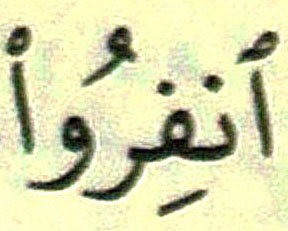 أنفِرُواْ